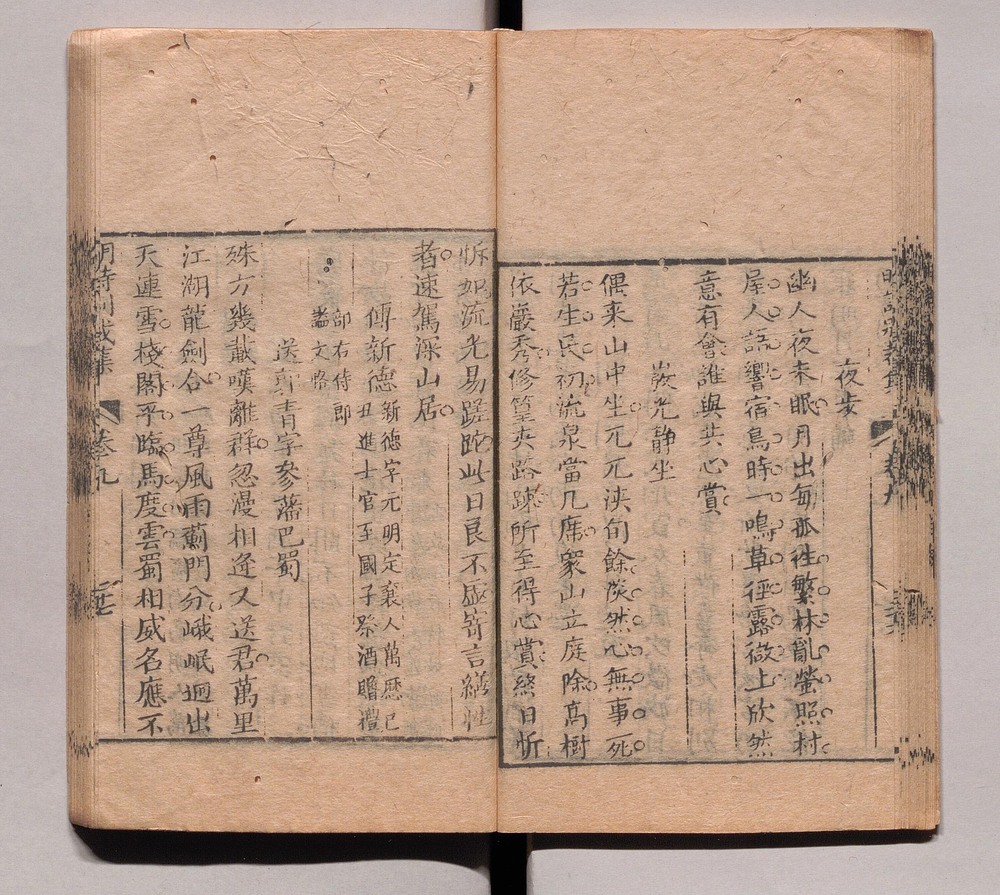 夜步
幽人夜未眠月出每孤往繁林亂螢照村
屋人語響宿鳥時一鳴草徑露微上欣然
意有會誰與共心賞
嚴先靜坐
偶來山中坐兀兀浹旬餘淡然心無事
若生民初流泉當几席眾山立庭除高樹
依巖秀修篁夾路疎所至得心賞終日忻
忻如流光易蹉跎此日良不虛寄言繕性
者速駕深山居
傅新德新德字元明定襄人萬歷己
丑進士官至國子祭酒贈禮
部右侍郎
諡文恪
送 青字參藩巴蜀
殊方幾載嘆離群忽漫相逢又送君萬里
江湖龍劍合一尊風雨薊門分峨岷迴出
天連雪棧閣平臨馬度雲蜀相威名應不
明詩別裁集 卷九